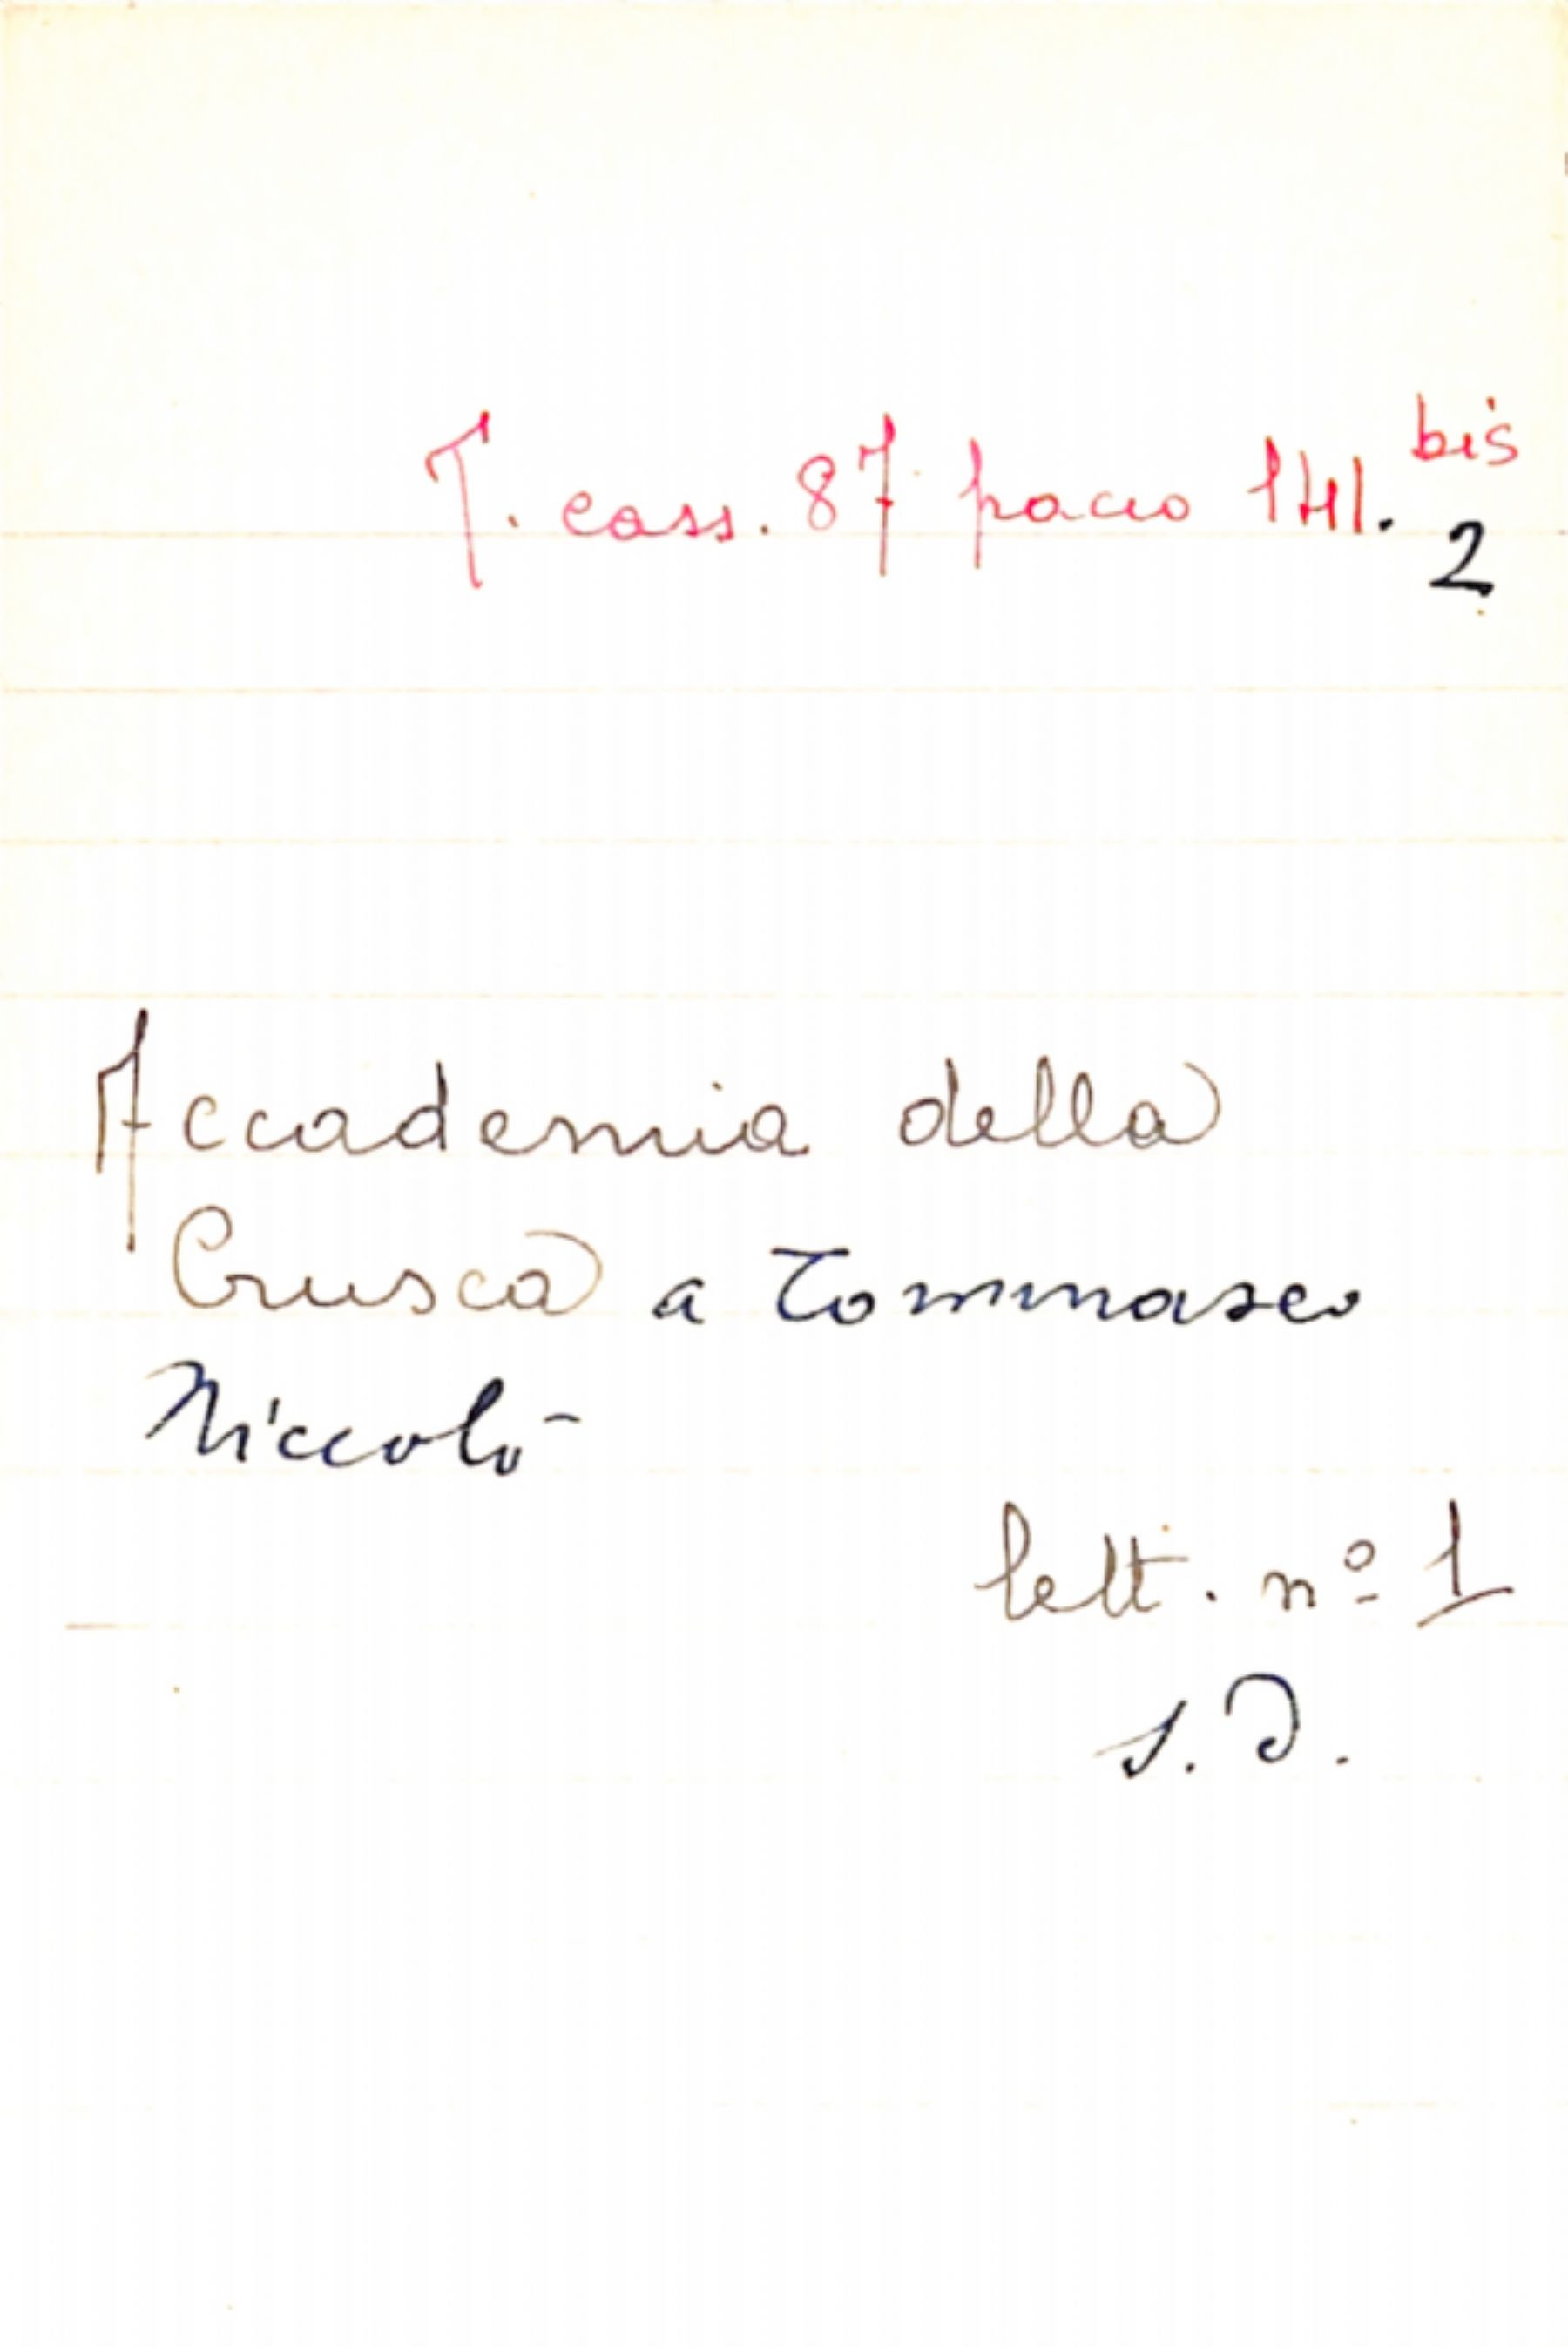 T. cass. 87 pacco 141. bis
2
Accademia della
Crusca a Tommaseo
Niccolò
lett. nº 1
s. D.